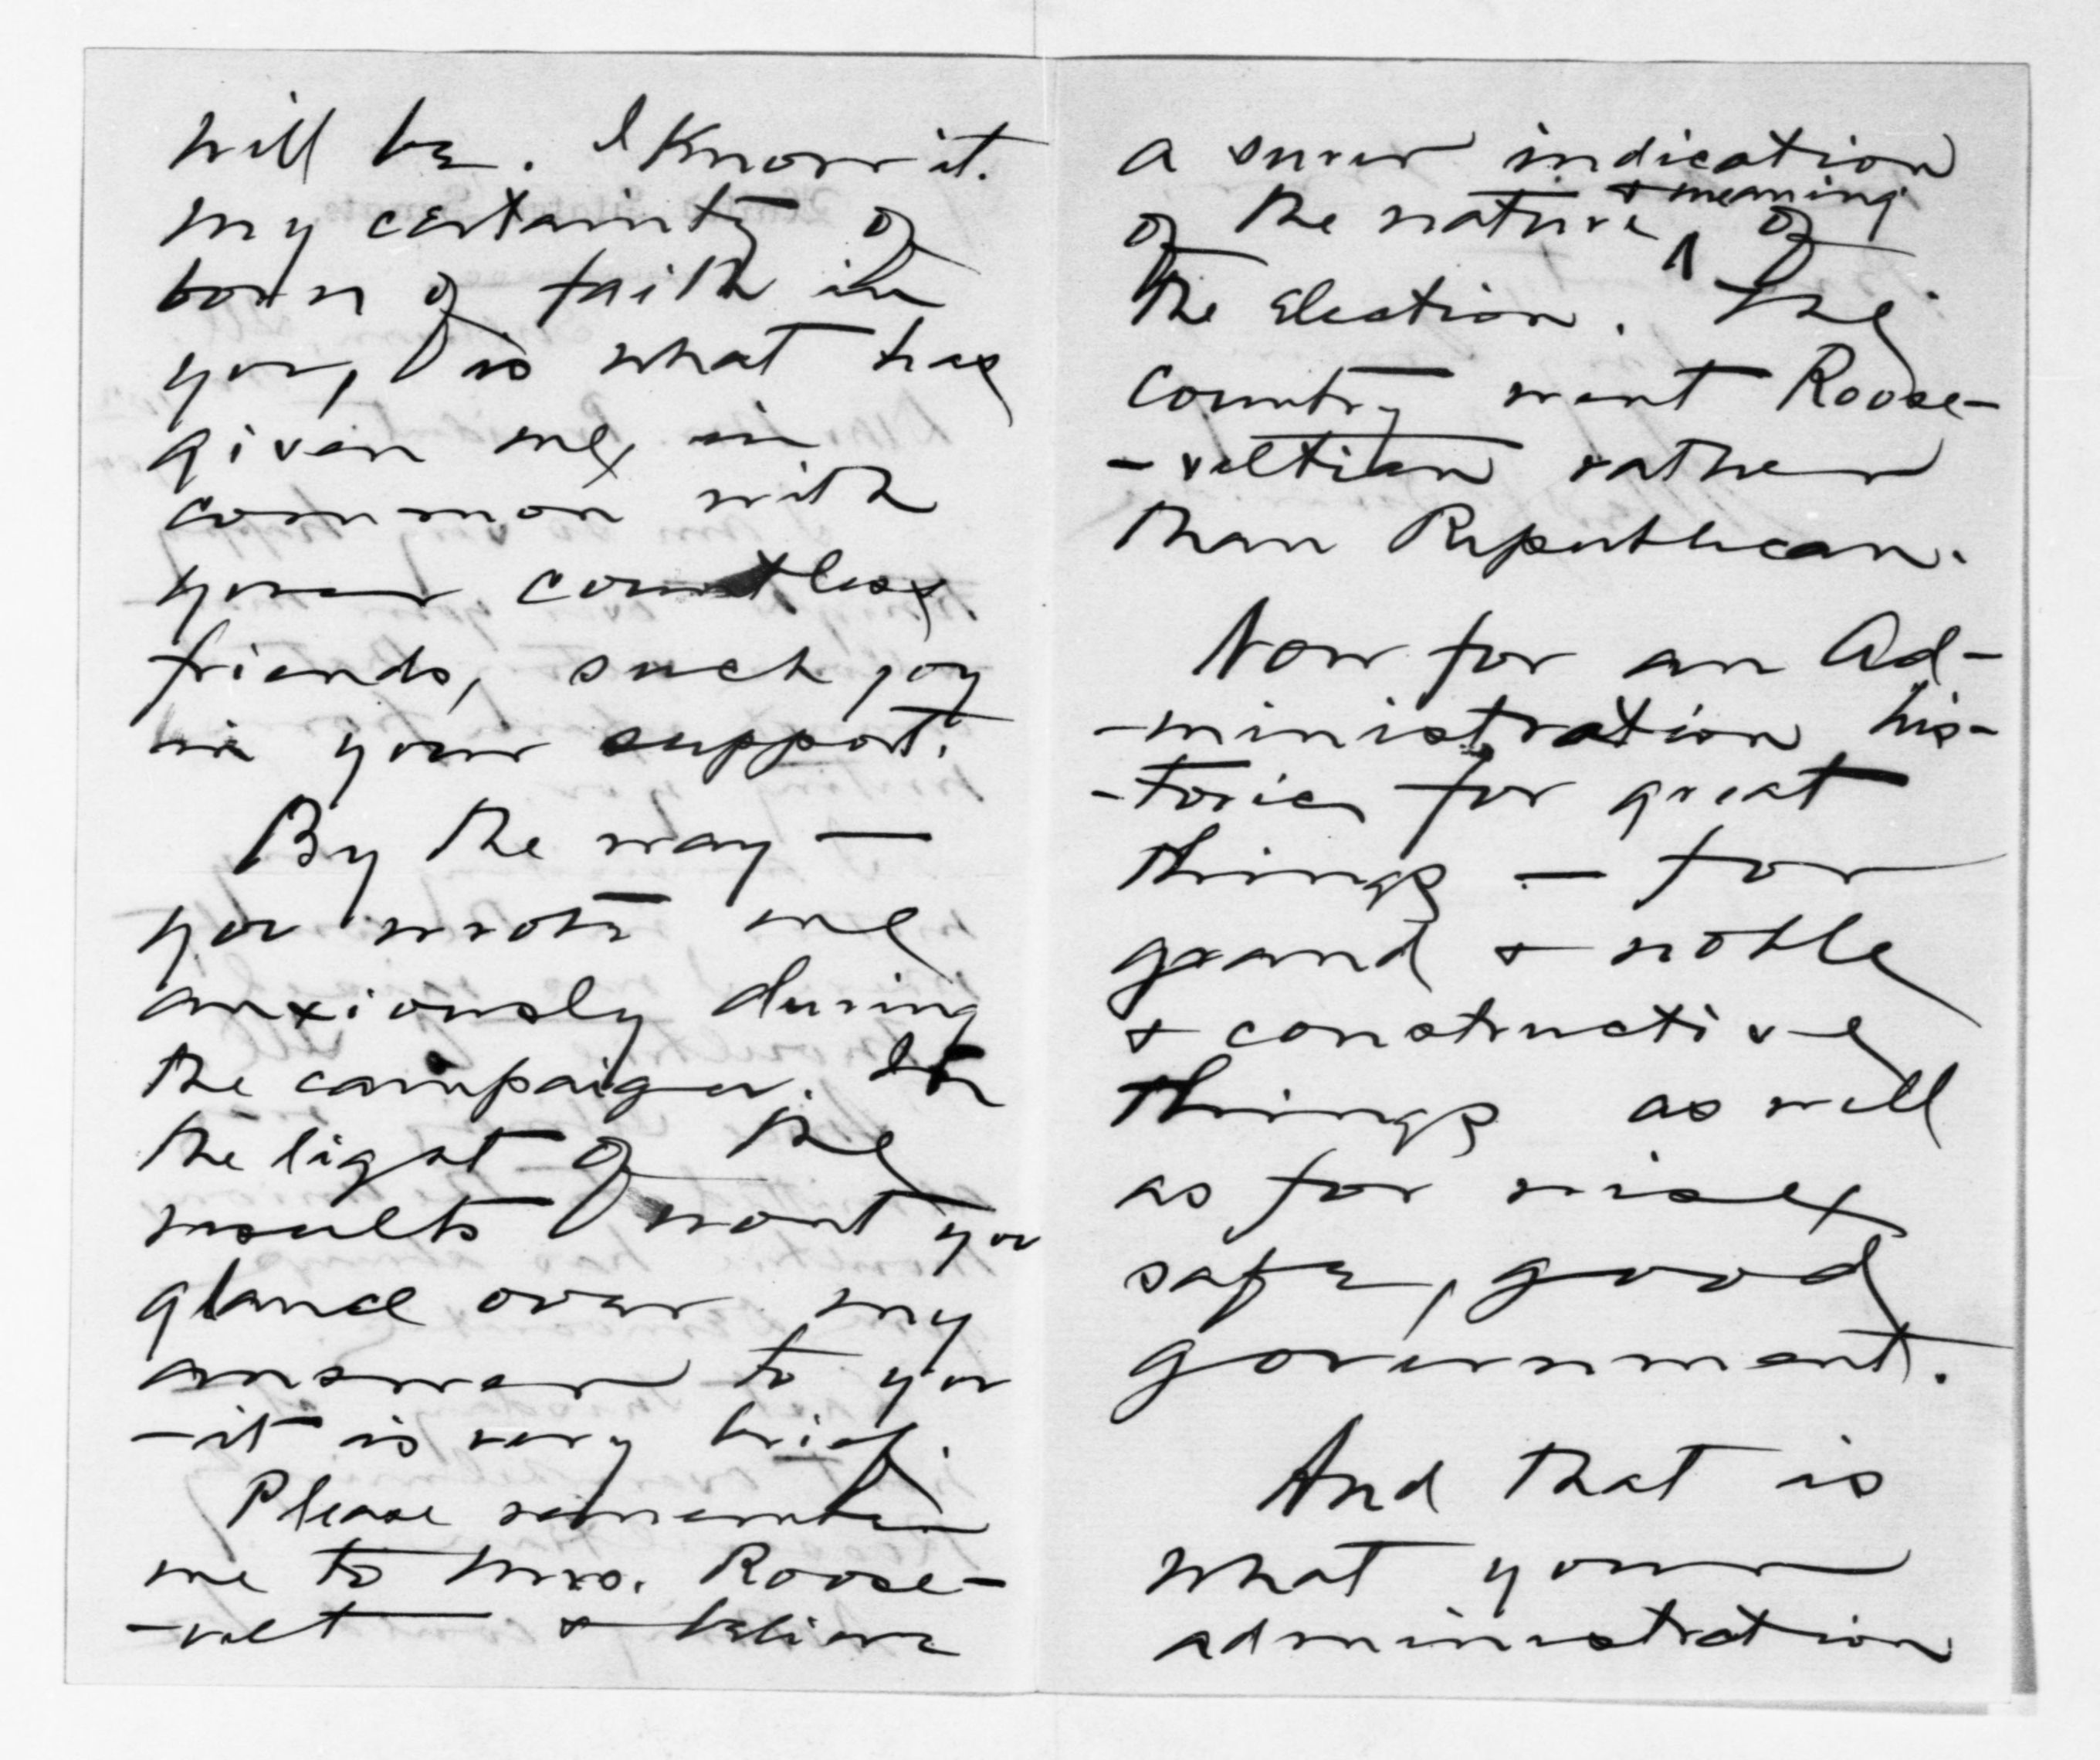 will be. I know it.
My certainty of
born of faith in
you, is what has
given me, in
common with
your countless
friends, such joy
in your support.
By the way —
you wrote me
anxiously during
the campaign. In
the light of the
results won't you
glance over my
answer to you
- it is very brief.
Please remember
me to Mrs. Roose-
-velt & believe
a surer indication
of the nature & meaning of
the election. The
country went Roose-
-veltian rather
than Republican.
Now for an Ad-
-ministration his-
-toric for great
things — for
grand & noble
& constructive
things as well
as for wise,
safe, good
government.
And that is
what your
administration